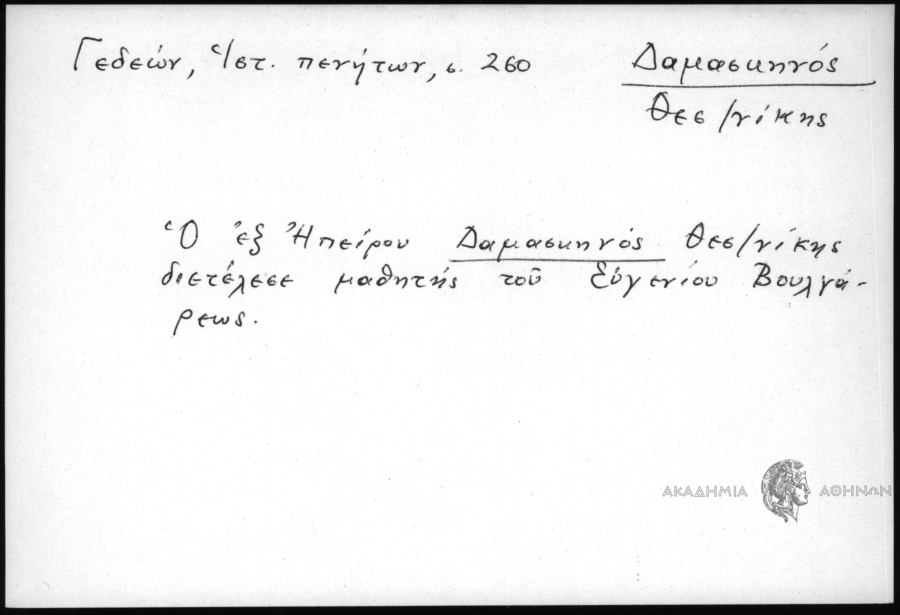 Γεδεών, Ἱστ. πενήτων, σ. 260
Δαμασκηνός
Θεσ/νίκης
Ὁ ἐξ Ἠπείρου Δαμασκηνός Θεσ/νίκης
διετέλεσε μαθητής τοῦ Εὐγενίου Βουλγά-
ρεως.
ΑΚΑΔΗΜΙΑ ΑΘΗΝΩΝ